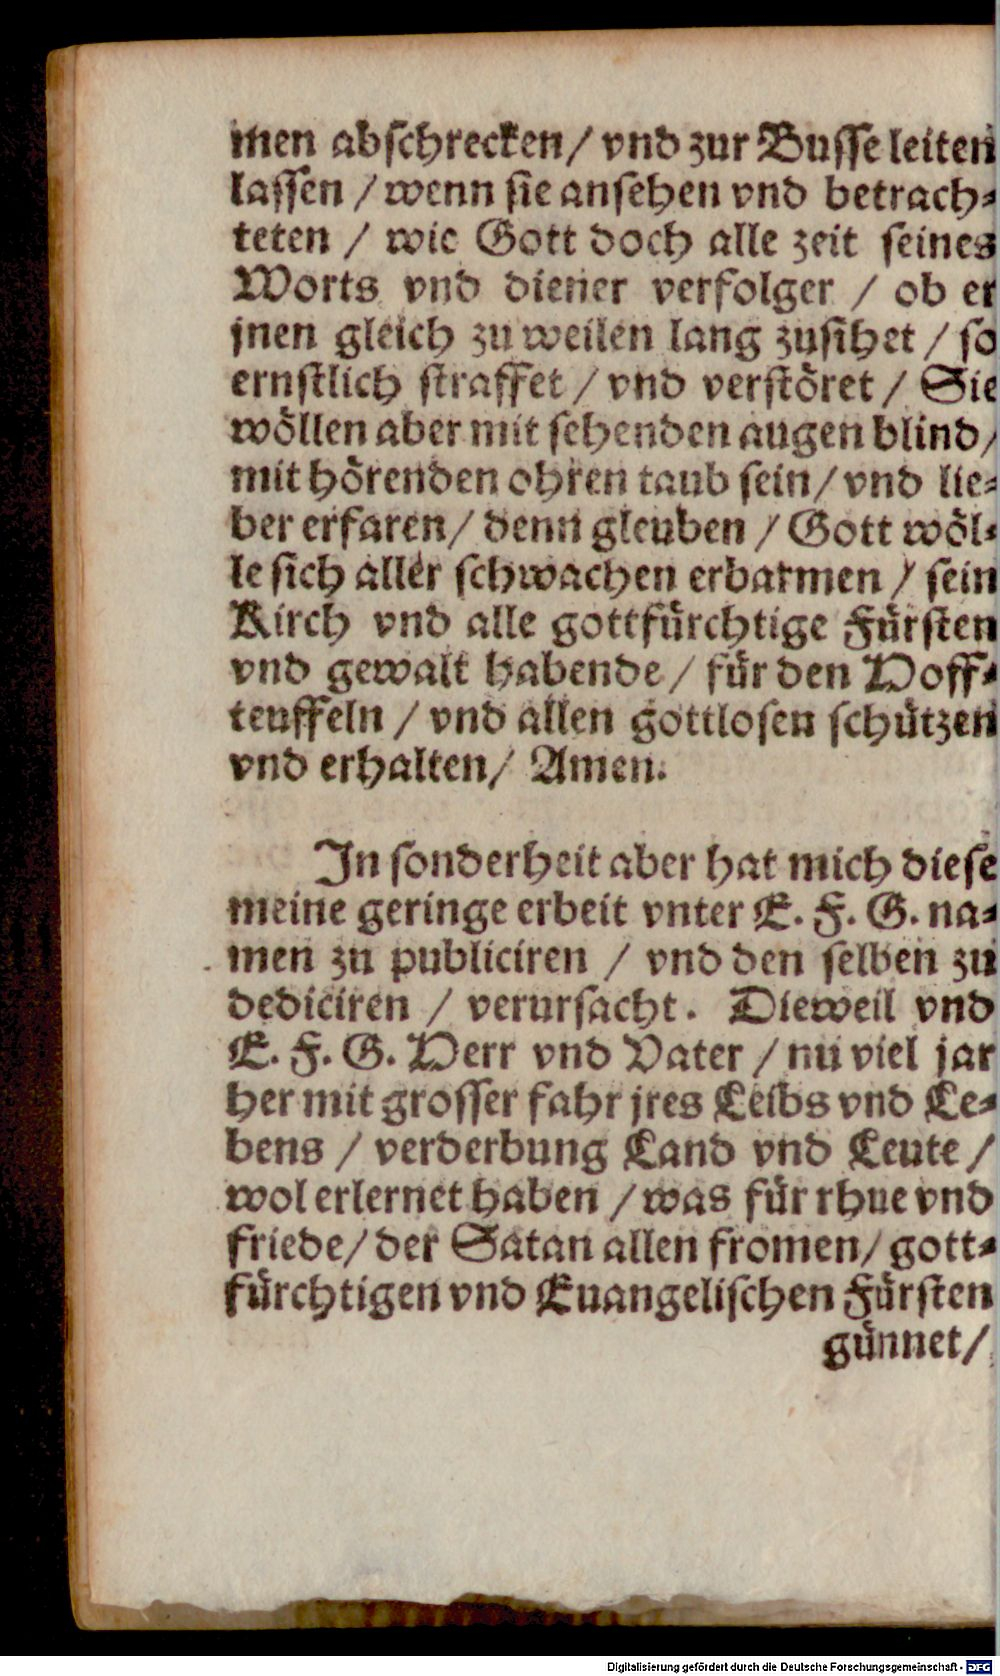 men abschrecken / vnd zur Busse leiten
lassen / wenn sie ansehen vnd betrach-
teten / wie Gott doch alle zeit seines
Worts vnd diener verfolger / ob er
jnen gleich zu weilen lang zusihet / so
ernstlich straffet / vnd verstöret / Sie
wöllen aber mit sehenden augen blind /
mit hörenden ohren taub sein / vnd lie-
ber erfaren / denn gleuben / Gott wöl-
le sich aller schwachen erbarmen / sein
Kirch vnd alle gottfürchtige Fürsten
vnd gewalt habende / für den Hoff-
teuffeln / vnd allen gottlosen schützen
vnd erhalten / Amen.
In sonderheit aber hat mich diese
meine geringe erbeit vnter E. F. G. na-
men zu publiciren / vnd den selben zu
dediciren / verursacht. Dieweil vnd
E. F. G. Herr vnd Vater / nu viel jar
her mit grosser fahr jres Leibs vnd Le-
bens / verderbung Land vnd Leute /
wol erlernet haben / was für rhue vnd
friede / der Satan allen fromen / gott-
fürchtigen vnd Euangelischen Fürsten
günnet /
Digitalisierung gefördert durch die Deutsche Forschungsgemeinschaft - DFG